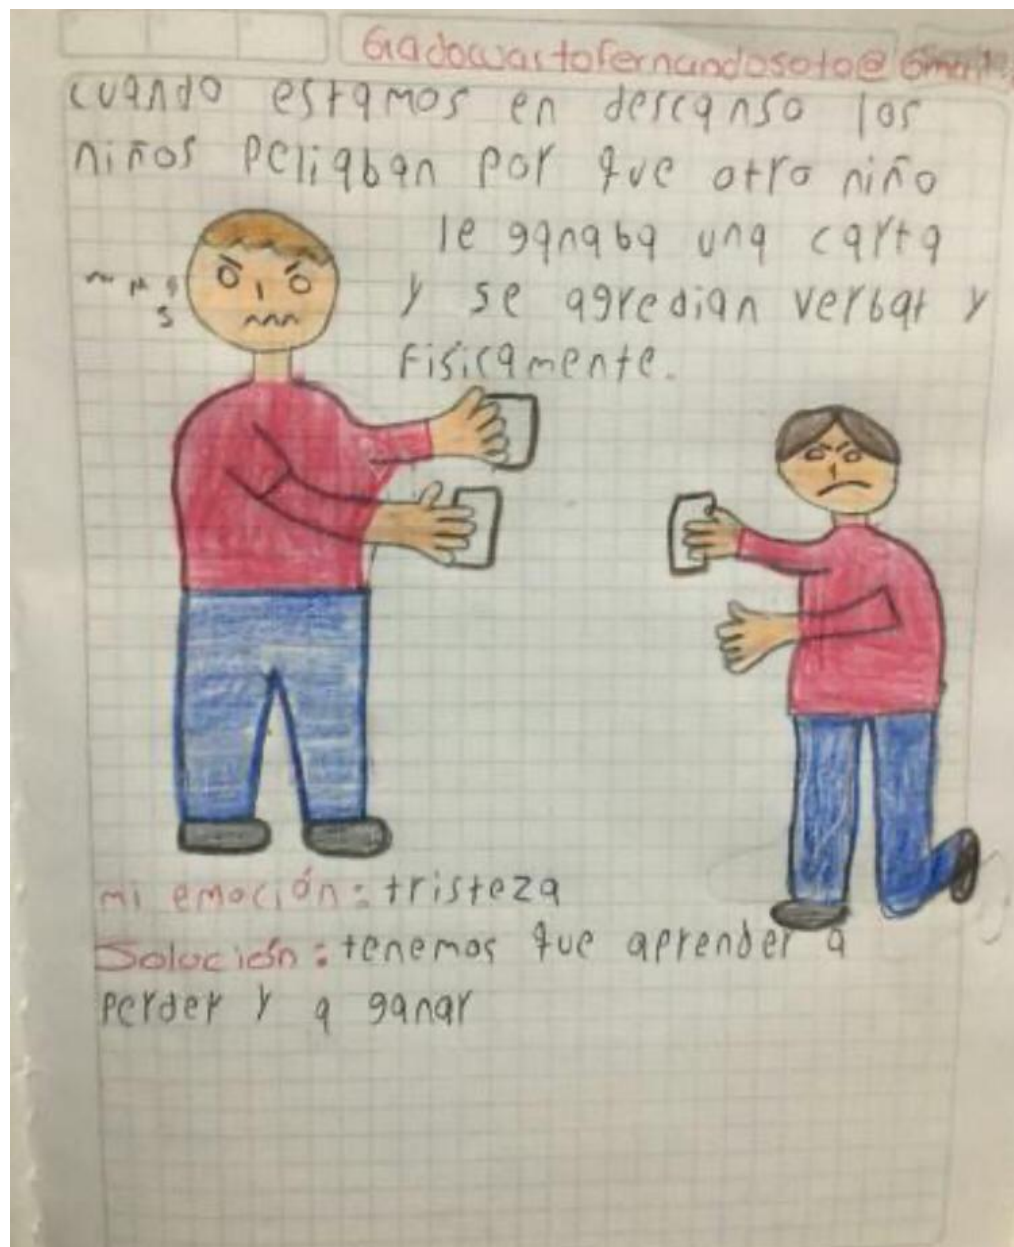 Gradocuartofernandosoto@Gmail
cuando estamos en descanso los
niños peliaban por que otro niño
le ganaba una carta
y se agredian verbar y
fisicamente.
mi emoción: tristeza
Solución: tenemos que aprender a
perder y a ganar